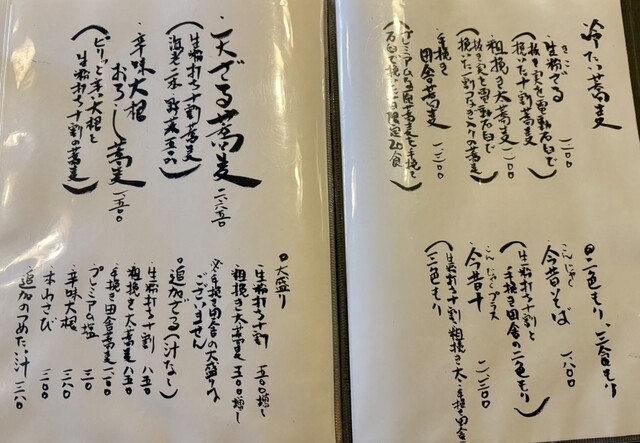 冷たい蕎麦
・生粉ざる 一一〇〇
きこ
（抜き実を電動石臼で
挽いた十割蕎麦）
・粗挽き太蕎麦 一一〇〇
（抜き実を電動石臼で
挽いた つなぎ入りの蕎麦）
・手挽き
田舎蕎麦 一三〇〇
（プレミアム玄蕎麦を手挽き
石臼で挽いた 限定20食）
◎二色もり、三色もり
こんじゃく
・今昔そば 一八〇〇
（生粉打ち十割と
手挽き田舎の二色もり）
こんじゃくプラス
・今昔十 二二〇〇
（生粉打ち十割・粗挽き太・手挽き田舎
三色もり）
・天ざる蕎麦 二六五〇
（生粉打ち十割蕎麦
海老二本 野菜五品）
・辛味大根
おろし蕎麦 一五〇
（ピリッと辛い大根と
生粉打ち十割の蕎麦）
◎大盛り
・生粉打ち十割 五〇〇増し
・粗挽き太蕎麦 五〇〇増し
※手挽き田舎の大盛りは
ございません
◎追加ざる（汁なし）
・生粉打ち十割 八五〇
・粗挽き太蕎麦 八五〇
・手挽き田舎蕎麦 一一〇〇
・プレミアム塩 三〇
・辛味大根 三八〇
・本山さび 三〇〇
・追加のつめたい汁 三八〇